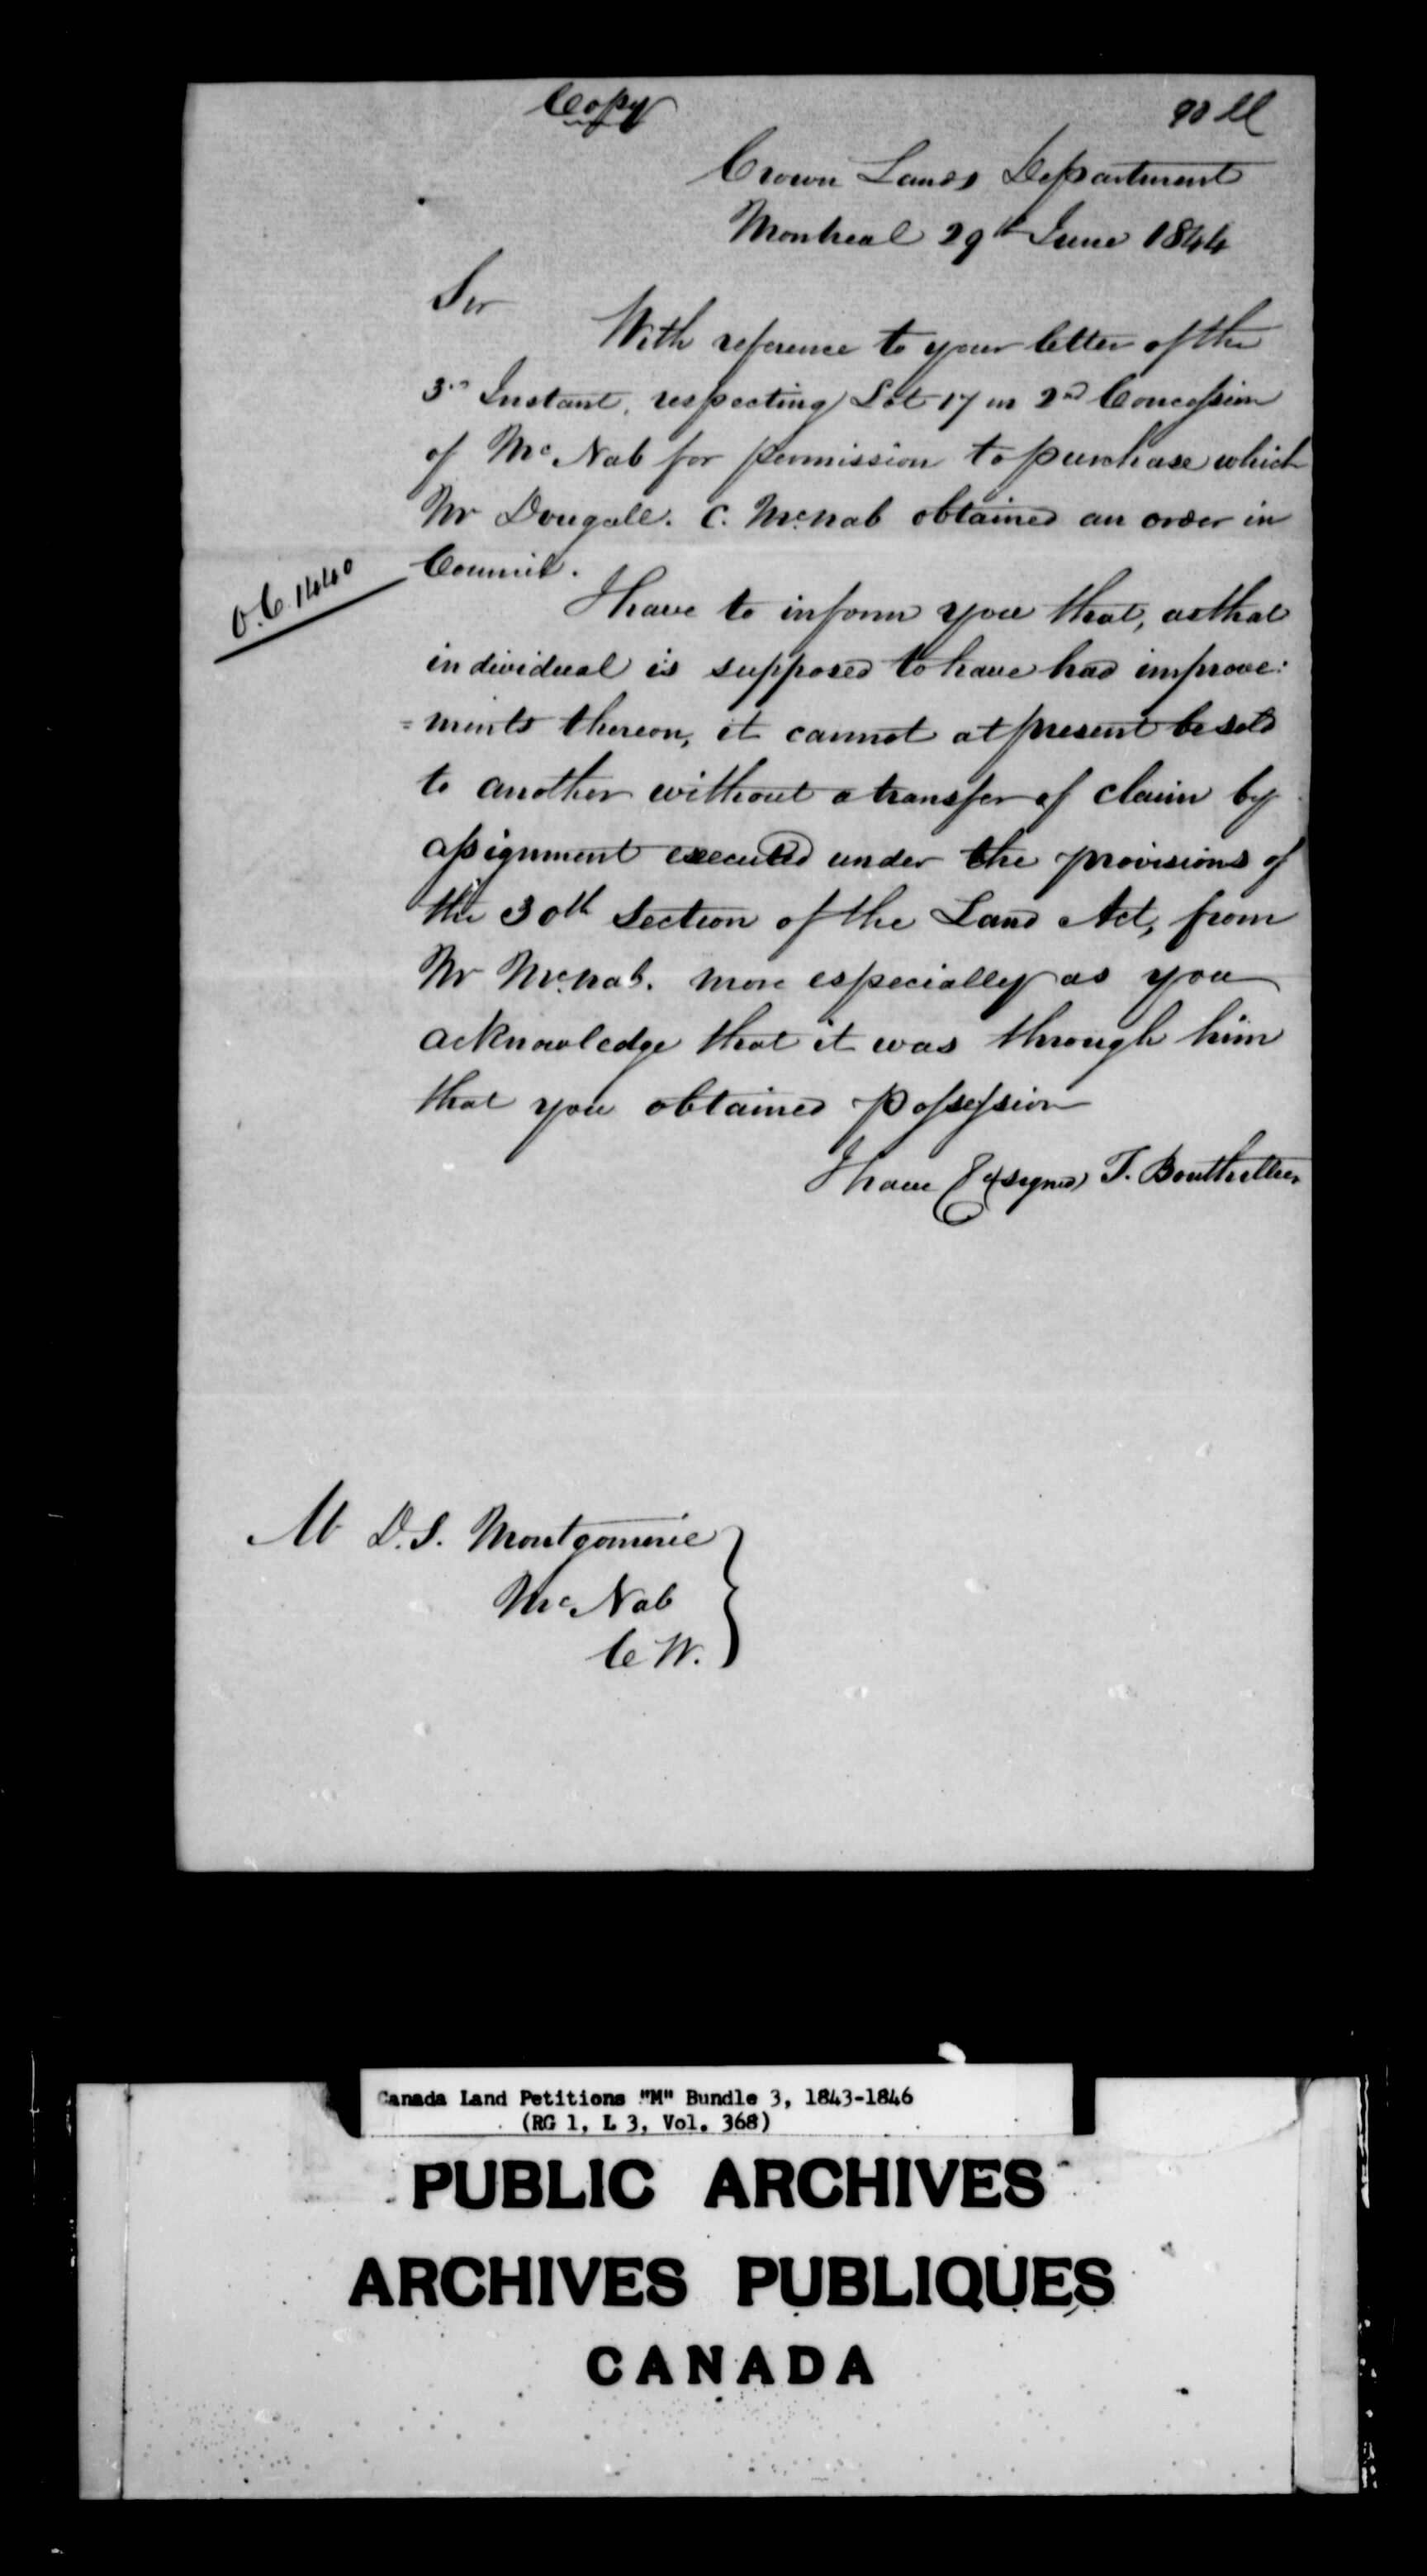 Copy
90 ll
Crown Lands Department
Montreal 29th June 1844
Sir
With reference to your letter of the
3rd Instant, respecting Lot 17 in 2nd Concession
of McNab for permission to purchase which
Mr Dougall. C. McNab obtained an order in
Council.
O.C. 1440
I have to inform you that, as that
individual is supposed to have had improve:
=ments thereon, it cannot at present be sold
to another without a transfer of claim by
assignment executed under the provisions of
the 30th Section of the Land Act, from
Mr McNab. more especially as you
acknowledge that it was through him
that you obtained possession
I have &c (signed) T. Bouthillier
Mr D.S. Montgomerie
McNab
C W.
Canada Land Petitions "M" Bundle 3, 1843-1846
(RG 1, L 3, Vol. 368)
PUBLIC ARCHIVES
ARCHIVES PUBLIQUES
CANADA